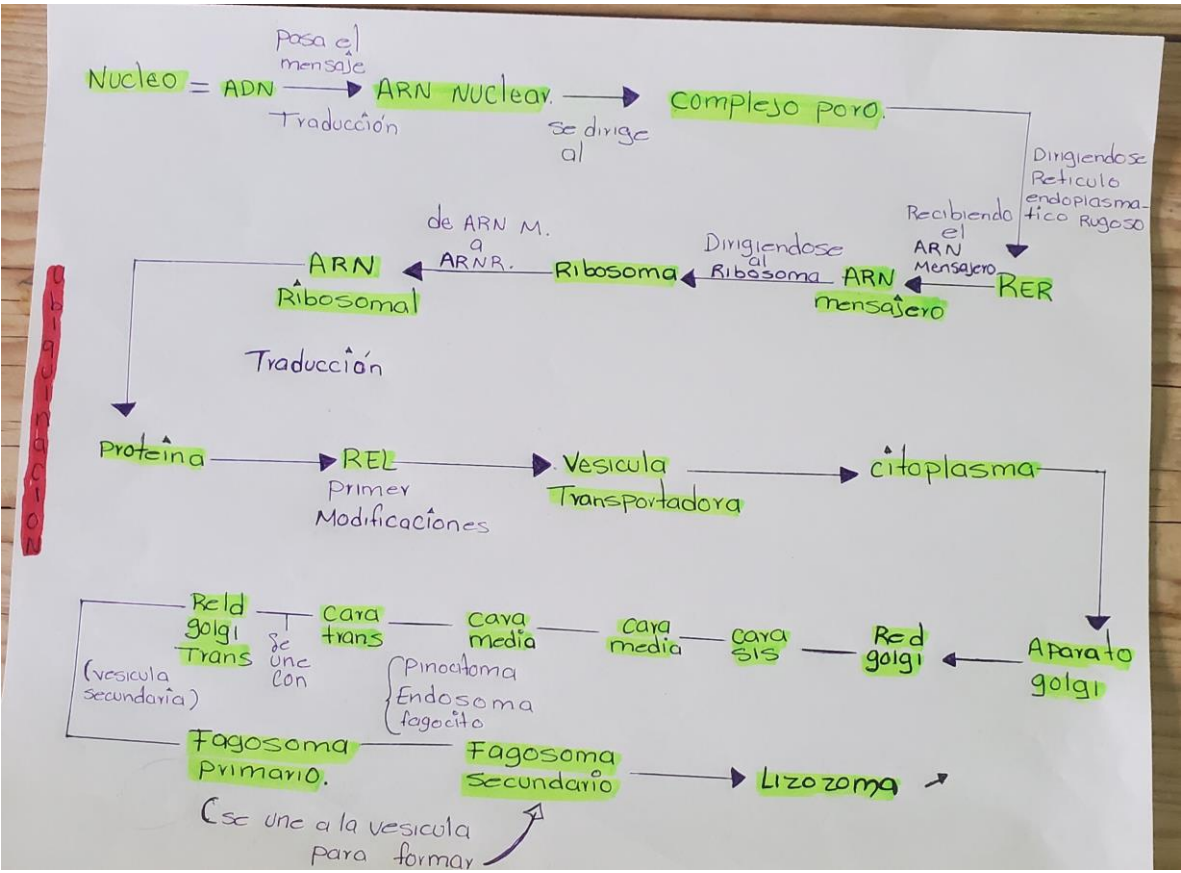 pasa el
mensaje
Nucleo = ADN
Traducción
ARN Nuclear.
se dirige
al
complejo poro.
Dirigiendose
Reticulo
endoplasma-
tico Rugoso
Recibiendo
el
ARN
Mensajero
RER
ARN
mensajero
Dirigiendose
al
Ribosoma
Ribosoma
de ARN M.
a
ARNR.
ARN
Ribosomal
Traducción
Ubiquinacion
Proteina
REL
Primer
Modificaciones
Vesicula
Transportadora
citoplasma
Aparato
golgi
Red
golgi
cara
sis
cara
media
cara
media
Cara
trans
Se
une
con
Reld
golgi
Trans
(vesicula
secundaria)
Pinocitoma
Endosoma
fagocito
Fagosoma
primario.
Fagosoma
secundario
Lizozoma
(se une a la vesicula
para formar